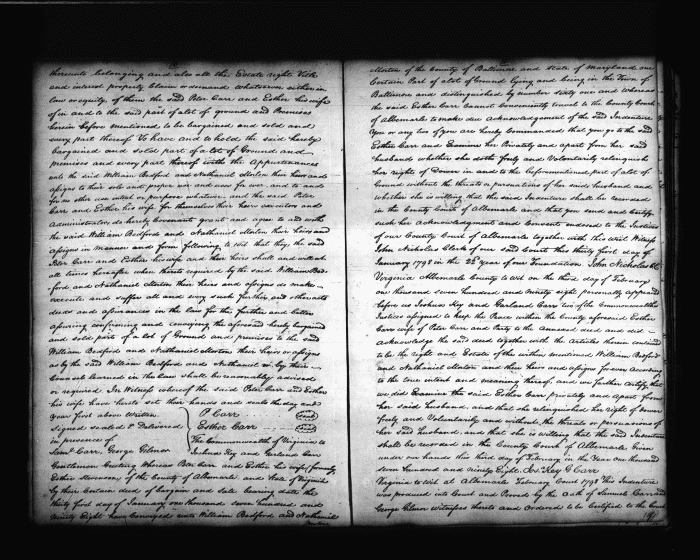 thereunto belonging and also all the Estate right Title
and interest property Claim or demand whatsoever either in
law or equity of them the said Peter Carr and Esther his wife
of in and to the said part of a lot of ground and Premises
herein before mentioned to be bargained and sold and
every part thereof To have and to hold the said hereby
bargained and sold part of a lot of Ground and
premises and every part thereof with the Appurtenances
unto the said William Bedford and Nathaniel Morton their heirs and
assigns to their sole and proper use and uses for ever and to and
for no other use intent or purpose whatever and the said Peter
Carr and Esther his wife for themselves their heirs executors and
Administrators do hereby Covenant grant and agree to and with
the said William Bedford and Nathaniel Morton their Heirs and
assigns in Manner and form following to wit that they the said
Peter Carr and Esther his wife and their heirs shall and will at
all times hereafter when thereto required by the said William Bed-
ford and Nathaniel Morton their heirs and assigns do make
execute and suffer all and every such further and other acts
deeds and assurances in the law for the further and better
assuring confirming and conveying the aforesaid hereby bargained
and sold part of a lot of Ground and premises to the said
William Bedford and Nathaniel Morton their heirs or assigns
as by the said William Bedford and Nathaniel or by their
Counsel learned in the law shall be reasonably advised
or required. In Witness whereof the said Peter Carr and Esther
his wife have hereto set their hands and seals the day and
Year first above Written
P Carr Seal
Signed sealed & Delivered
Esther Carr Seal
in presence of
The Commonwealth of Virginia to
Saml. Carr, George Gilmer
Joshua Key and Garland Carr
Gentlemen Greeting Whereas Peter Carr and Esther his wife formerly
Esther Stevenson of the County of Albemarle and State of Virginia
by their Certain deed of bargain and Sale bearing date the
thirty first day of January one thousand seven hundred and
Ninety Eight have Conveyed unto William Bedford and Nathaniel
Morton of the County of Baltimore and State of Maryland one
Certain Part of a lot of Ground lying and being in the Town of
Baltimore and distinguished by number sixty one and whereas
the said Esther Carr Cannot Conveniently travel to the County Court
of Albemarle to make due acknowledgement of the said Indenture
You or any two of you are hereby Commanded that you go to the said
Esther Carr and Examine her Privately and apart from her said
husband whether she doth freely and Voluntarily relinquish
her right of Dower in and to the beforementioned part of a lot of
Ground without the threats or persuasions of her said husband and
whether she is willing that the said Indenture shall be recorded
in the County Court of Albemarle and that you send and Certify
such her acknowledgment and Consent endorsed to the Justices
of our County Court of Albemarle together with this Writ Witness
John Nicholas Clerk of our said Court this thirty first day of
January 1798 in the 22d year of our Foundation. John Nicholas Clk
Virginia Albemarle County to wit on the third day of February
one thousand seven hundred and Ninety eight personally appeared
before us Joshua Key and Garland Carr two of the Commonwealths
Justices assigned to keep the Peace within the County aforesaid Esther
Carr wife of Peter Carr and Party to the annexed deed and did
acknowledge the said deed together with the Articles herein contained
to be the right and Estate of the within mentioned William Bedford
and Nathaniel Morton and their heirs and assigns for ever According
to the true intent and meaning thereof, and we further Certify, that
we did Examine the said Esther Carr privately and apart from
her said husband, and that she relinquished her right of dower
freely and Voluntarily and without the threats or persuasions of
her said husband, and that she is willing that the said Indenture
shall be recorded in the County Court of Albemarle Given
under our hands this third day of February in the Year one thousand
seven hundred and ninety Eight Jos. Key G Carr
Virginia to Wit at Albemarle February Court 1798 This Indenture
was produced into Court and Proved by the Oath of Samuel Carr and
George Gilmer Witnesses thereto and Ordered to be Certified to the Court